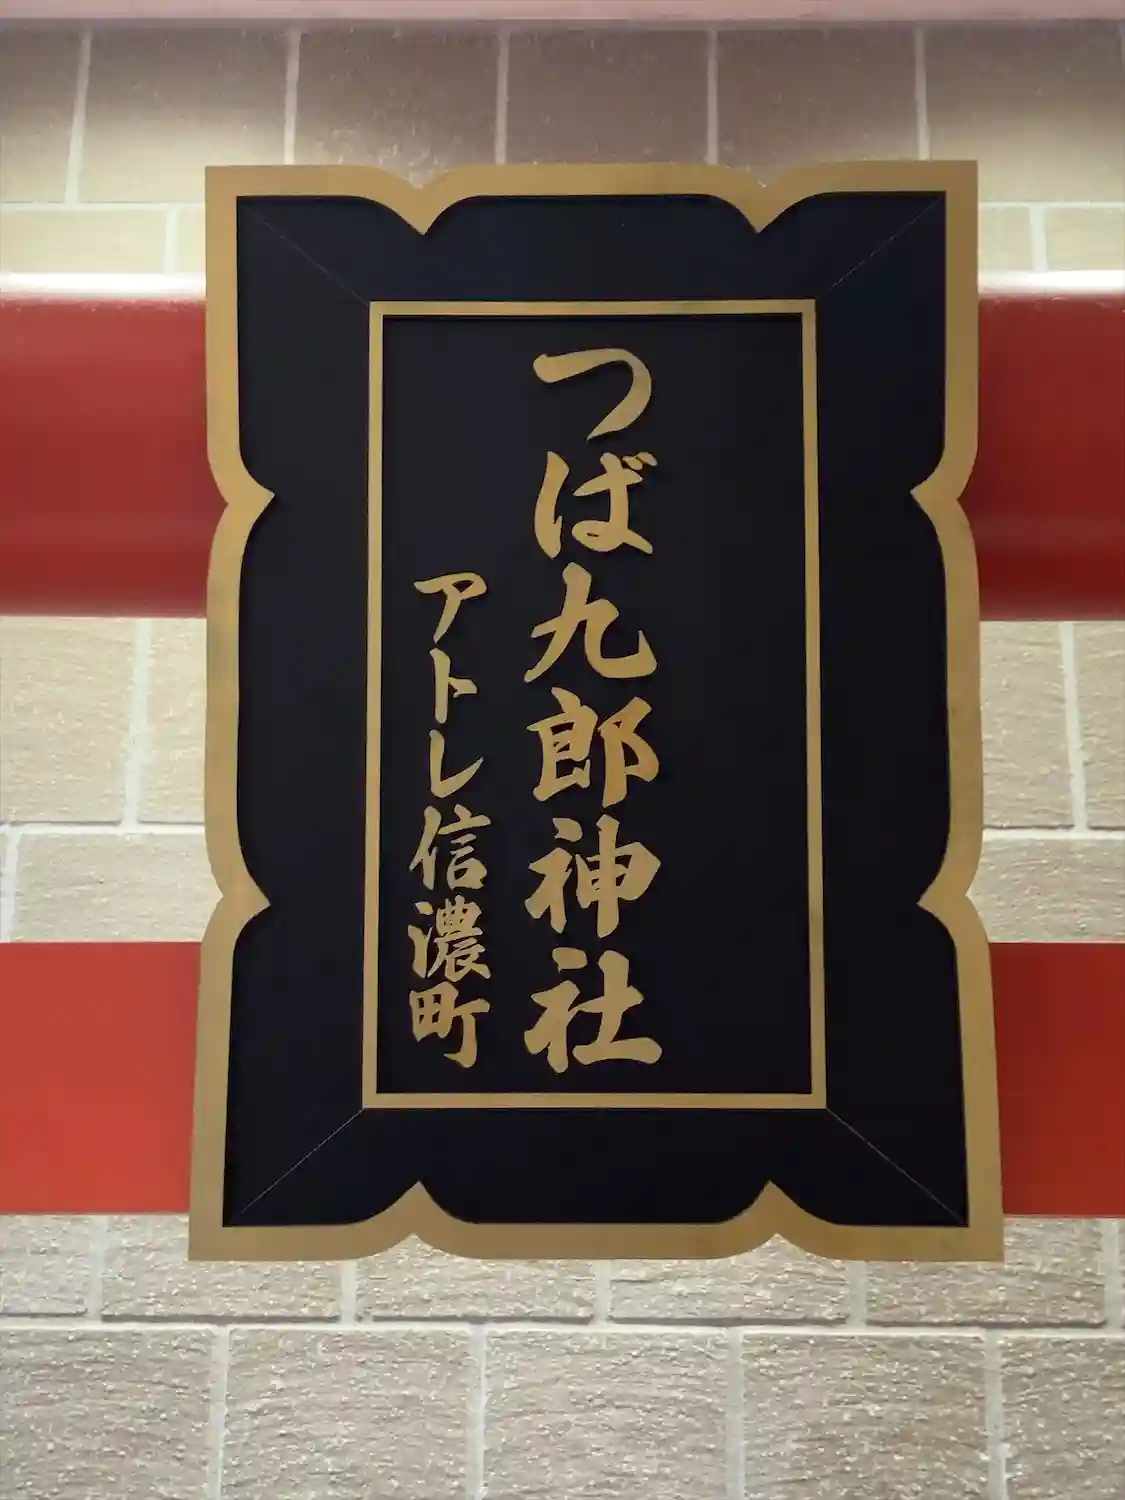 つば九郎神社
アトレ信濃町